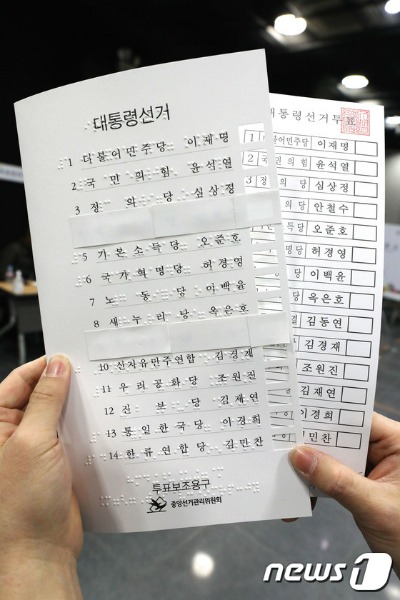 대통령선거
1 더불어민주당 이재명
2 국민의힘 윤석열
3 정의당 심상정
5 기본소득당 오준호
6 국가혁명당 허경영
7 노동당 이백윤
8 새누리당 옥은호
10 신자유민주연합 김경재
11 우리공화당 조원진
12 진보당 김재연
13 통일한국당 이경희
14 한류연합당 김민찬
투표보조용구
중앙선거관리위원회
대통령선거투표
1 어민주당 이재명
2 국 의힘 윤석열
3 정 의 당 심상정
당 안철수
득당 오준호
명당 허경영
당 이백윤
당 옥은호
결 김동연
김경재
조원진
김재연
이경희
민찬
news1